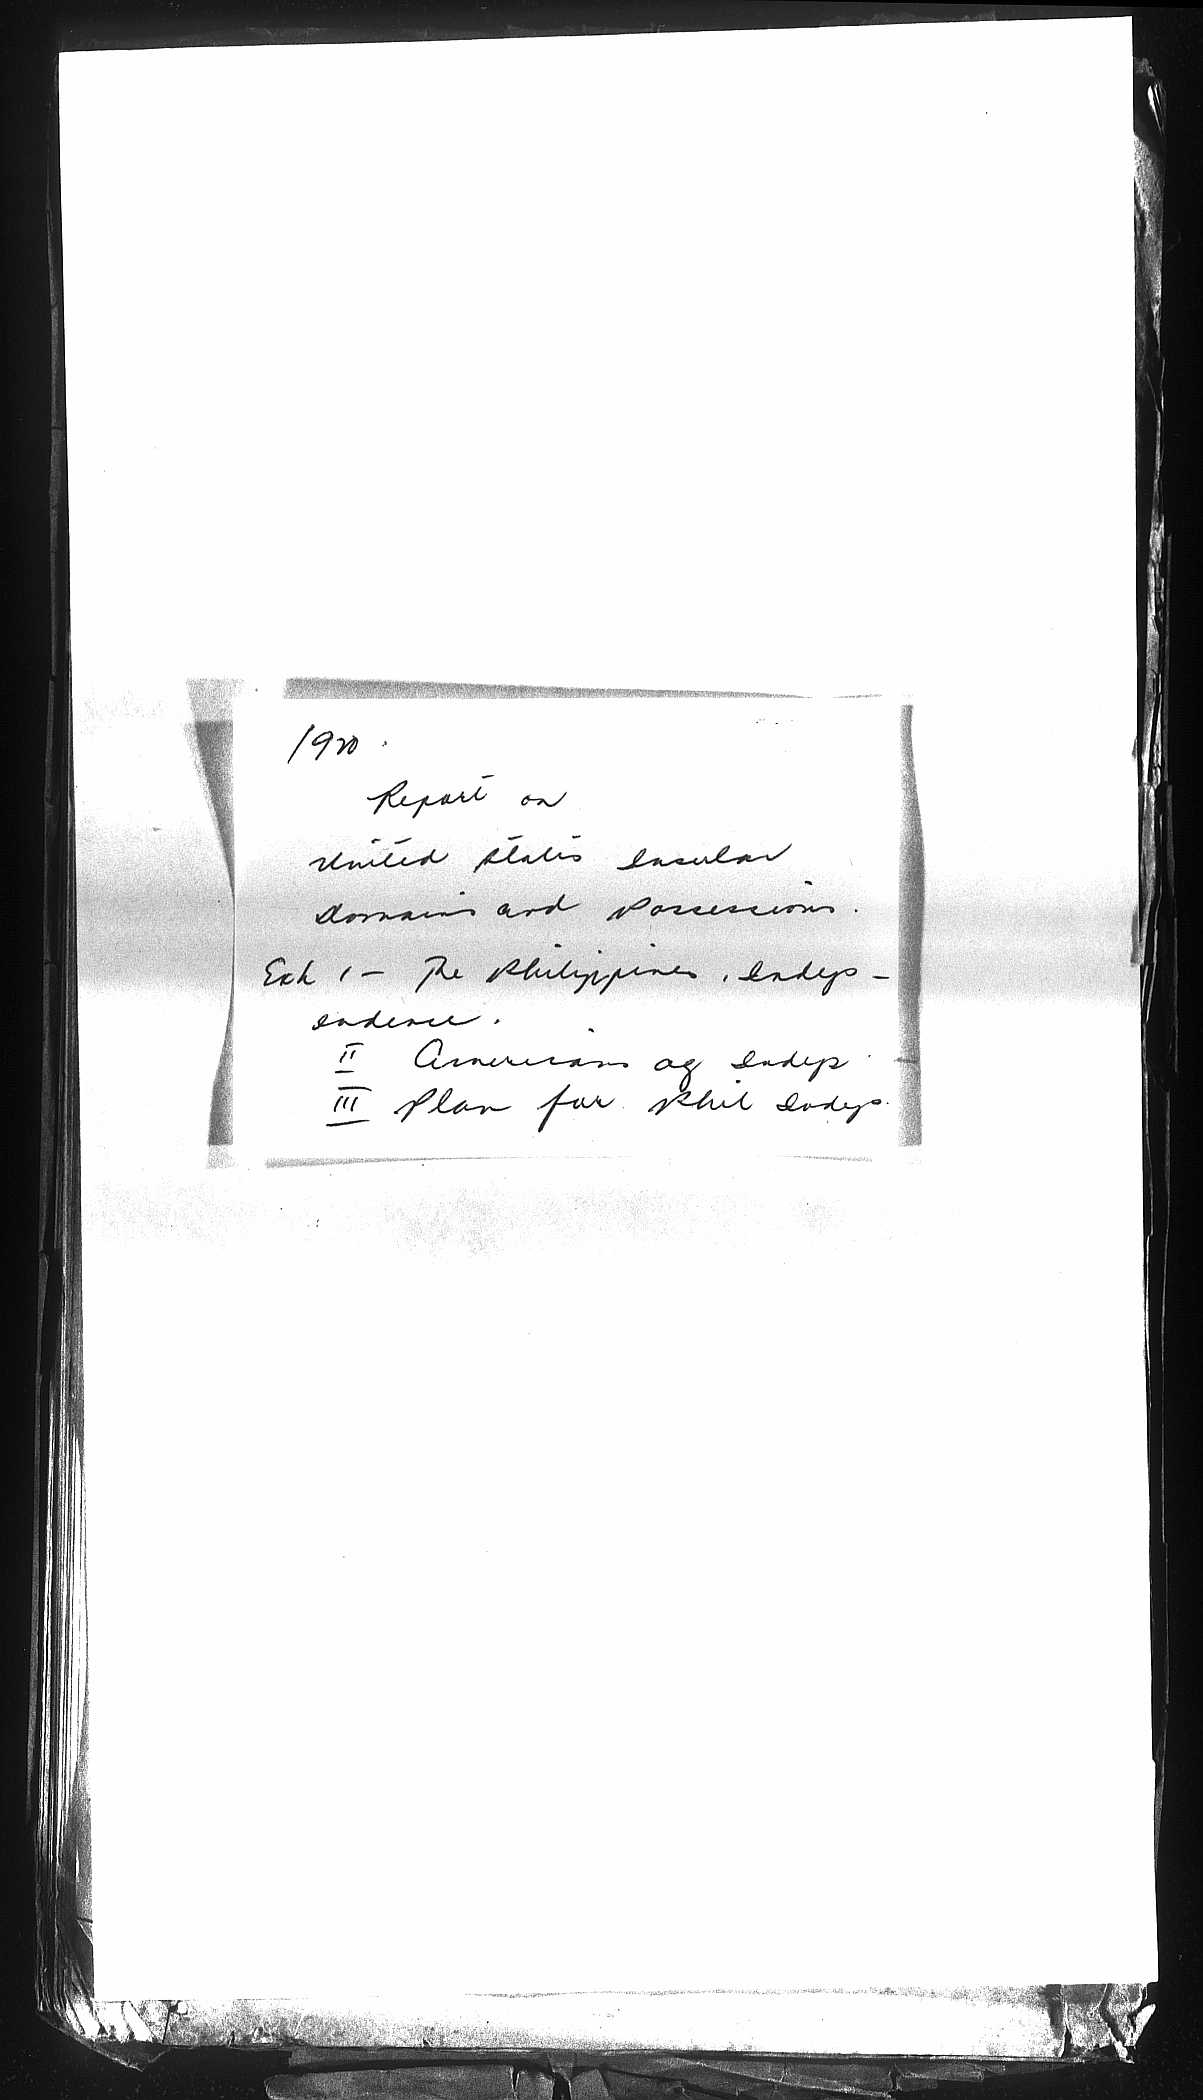 1920.
Report on
United States Insular
Domains and Possessions.
Exh 1 - The Philippines, Indep-
endence.
II Americans ag Indep.
III Plan for Phil Indep.